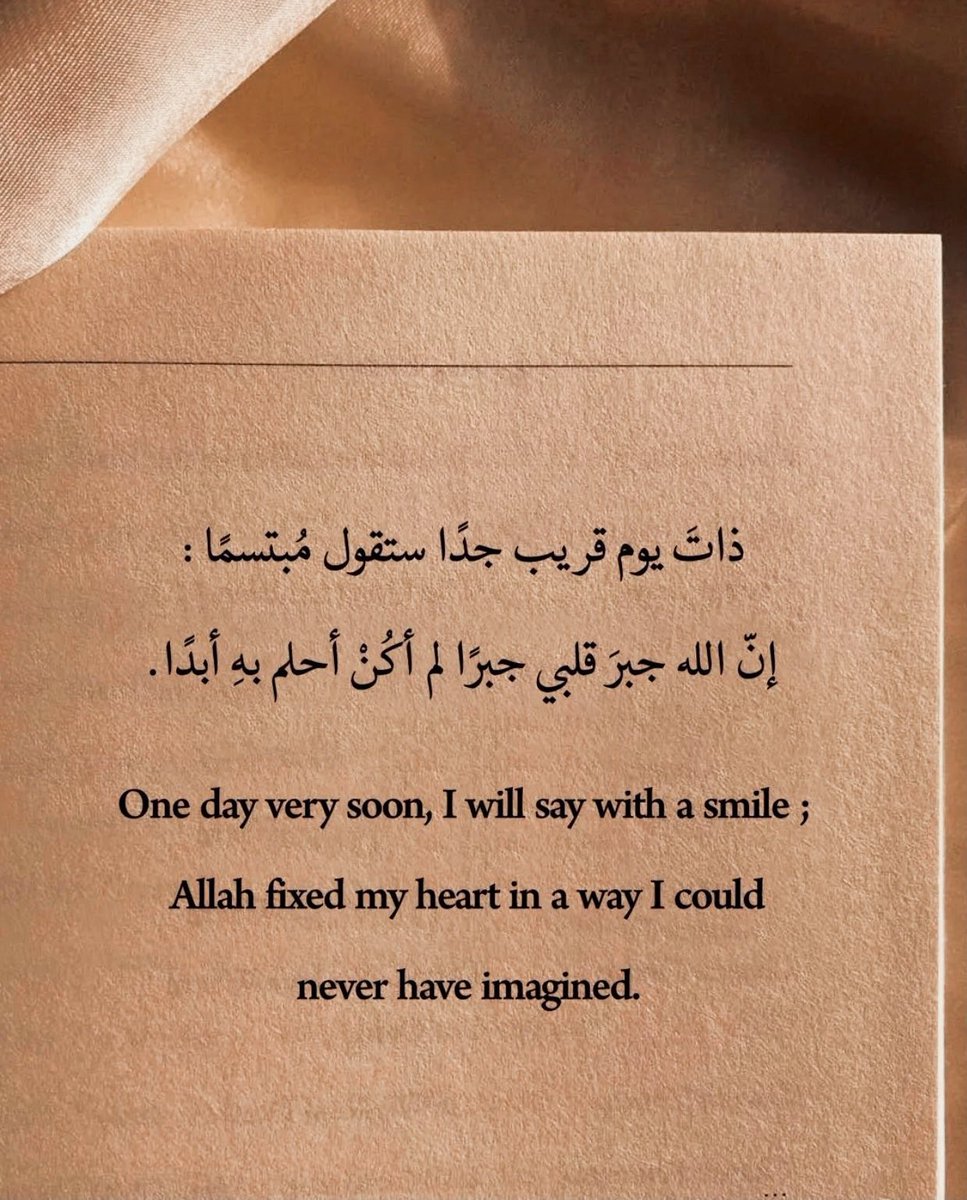 ذاتَ يوم قريب جدًا ستقول مُبتسمًا :
إنّ الله جبرَ قلبي جبرًا لم أكُنْ أحلم بهِ أبدًا .
One day very soon, I will say with a smile ;
Allah fixed my heart in a way I could
never have imagined.
...